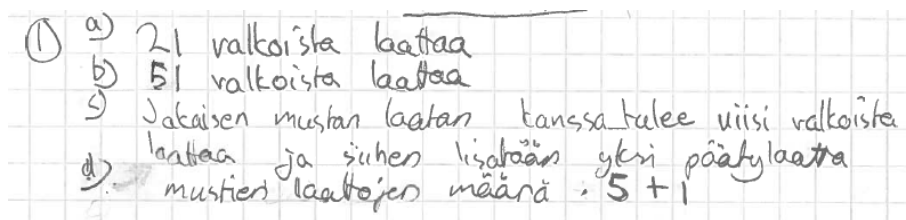 ① a) 21 valkoista laattaa
b) 51 valkoista laattaa
c) Jokaisen mustan laatan kanssa tulee viisi valkoista
laattaa ja siihen lisätään yksi päätylaatta
d) mustien laattojen määrä · 5 + 1